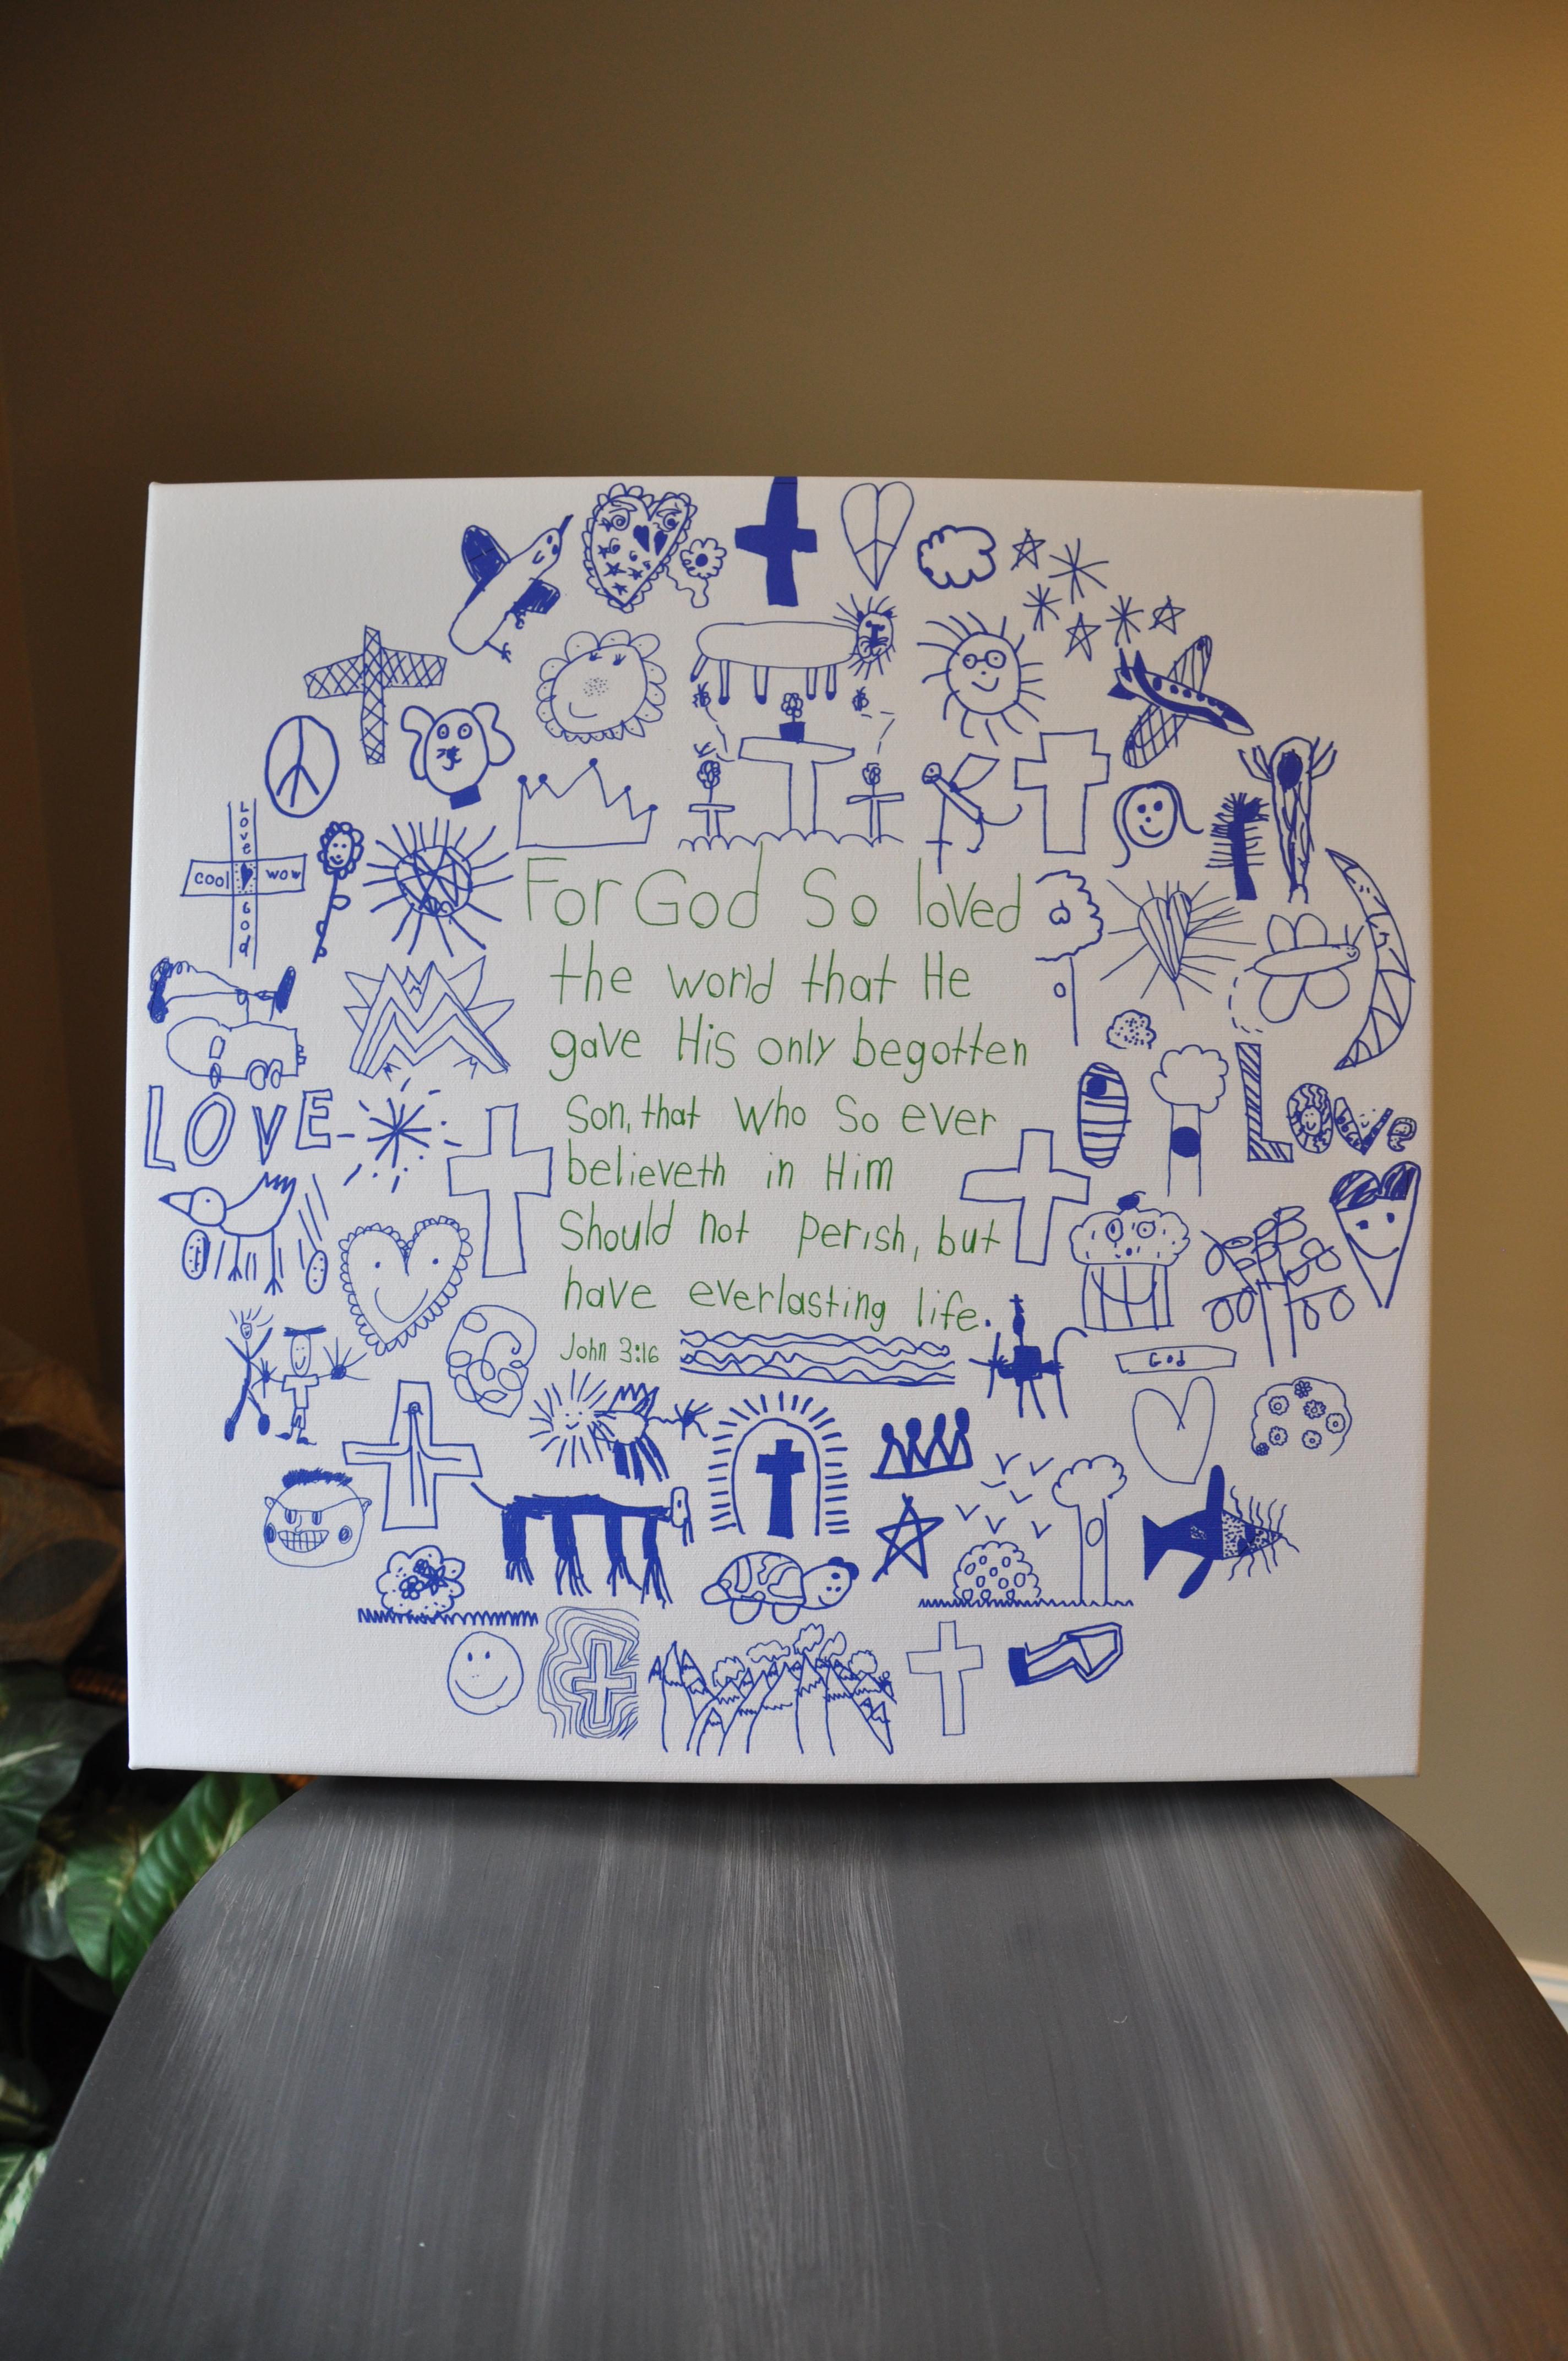 Love
cool wow
God
For God So loved
the world that He
gave His only begotten
Son, that Who So ever
believeth in Him
Should not perish, but
have everlasting life.
John 3:16
LOVE
Love
God